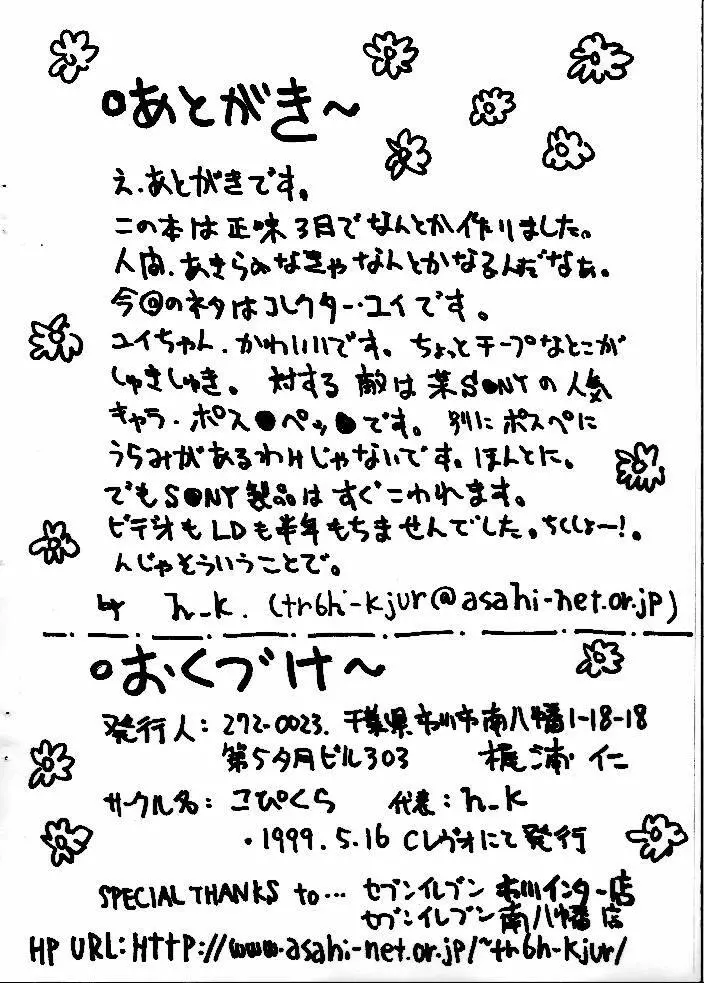 ○あとがき～
え、あとがきです。
この本は正味3日でなんとか作りました。
人間、あきらめなきゃなんとかなるんだなぁ。
今@のネタはコレクター・ユイです。
ユイちゃん、かわいいです。ちょっとチープなとこが
しゅきしゅき。対する敵は某S●NYの人気
キャラ・ポス●ペッ●です。別にポスペに
うらみがあるわけじゃないです。ほんとに。
でもS●NY製品はすぐこわれます。
ビデオもLDも半年もちませんでした。ちくしょー!。
んじゃそういうことで。
by h_k. (tr6h-kjur@asahi-net.or.jp)
○おくづけ～
発行人: 272-0023. 千葉県市川市南八幡1-18-18
第5夕月ビル303 梶浦 仁
サークル名: こぴくら 代表: h_k
・1999.5.16 Cレヴォにて発行
SPECIAL THANKS to… セブンイレブン 市川インター店
セブンイレブン 南八幡店
HP URL: HTTP://www.asahi-net.or.jp/~tr6h-kjur/